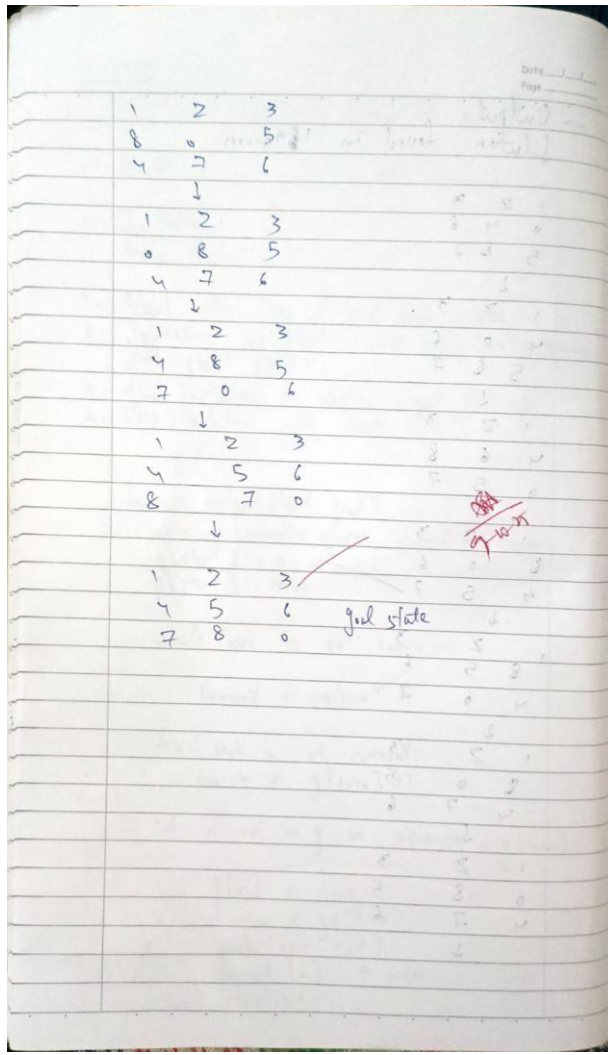 Date / /
Page
1 2 3
8 0 5
4 7 6
↓
1 2 3
0 8 5
4 7 6
↓
1 2 3
4 8 5
7 0 6
↓
1 2 3
4 5 6
8 7 0
↓
1 2 3
4 5 6 goal state
7 8 0